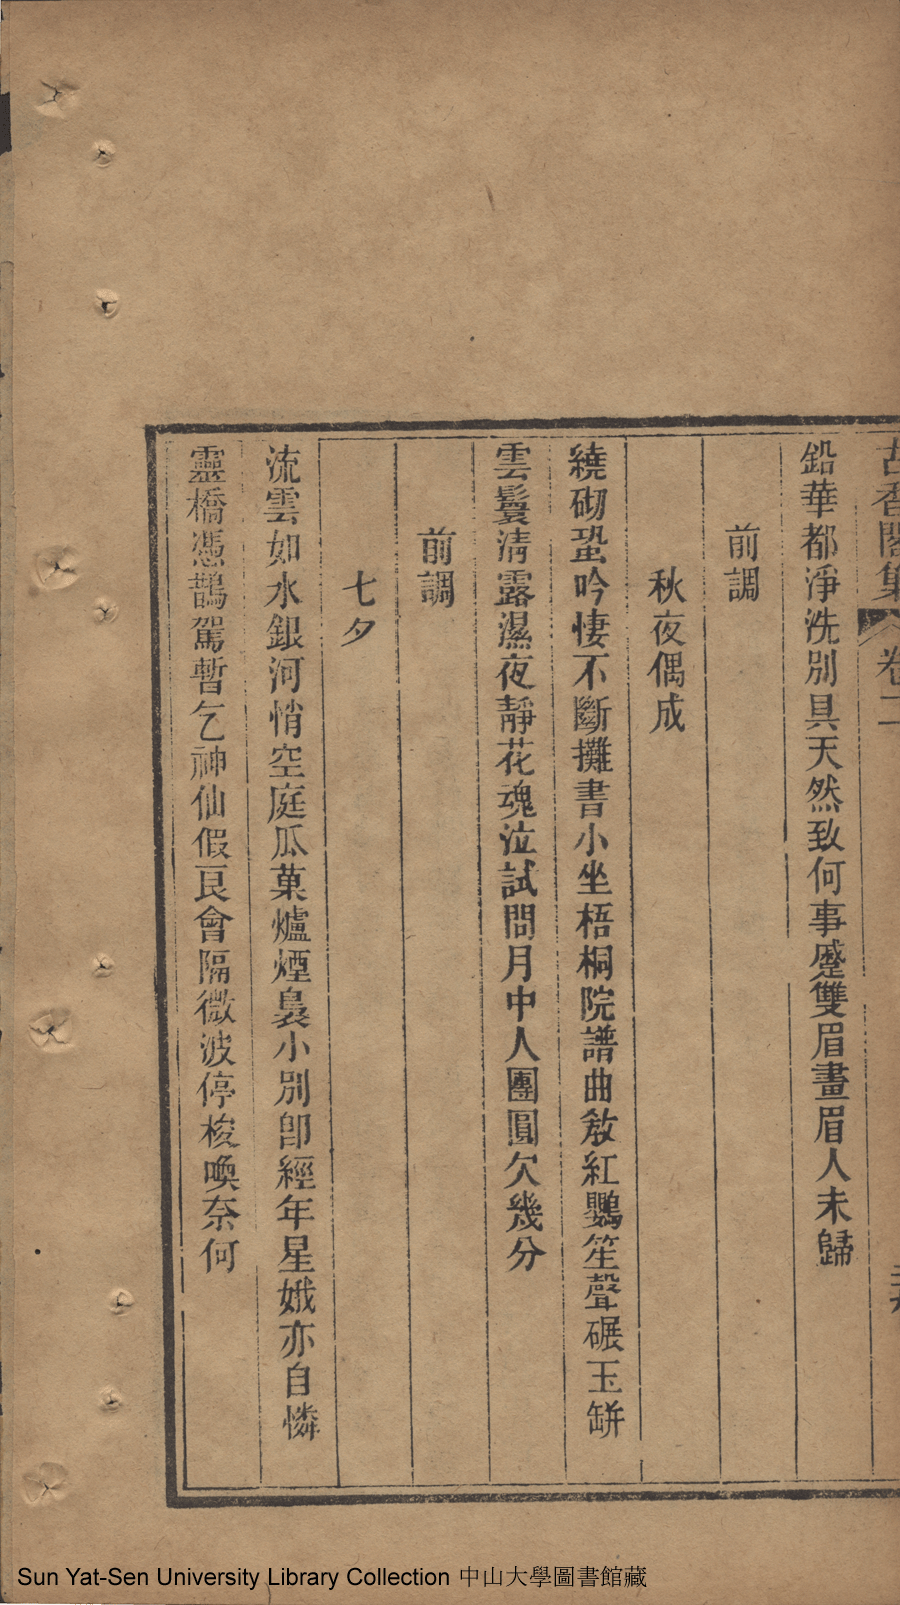 古香閣集 卷二
鉛華都淨洗別具天然致何事蹙雙眉畫眉人未歸
前調
秋夜偶成
繞砌蛩吟悽不斷攤書小坐梧桐院譜曲敎紅鸚笙聲碾玉缾
雲鬟淸露濕夜靜花魂泣試問月中人團圓欠幾分
前調
七夕
流雲如水銀河悄空庭瓜菓爐煙裊小別卽經年星娥亦自憐
靈橋憑鵲駕暫乞神仙假良會隔微波停梭喚奈何
Sun Yat-Sen University Library Collection 中山大學圖書館藏